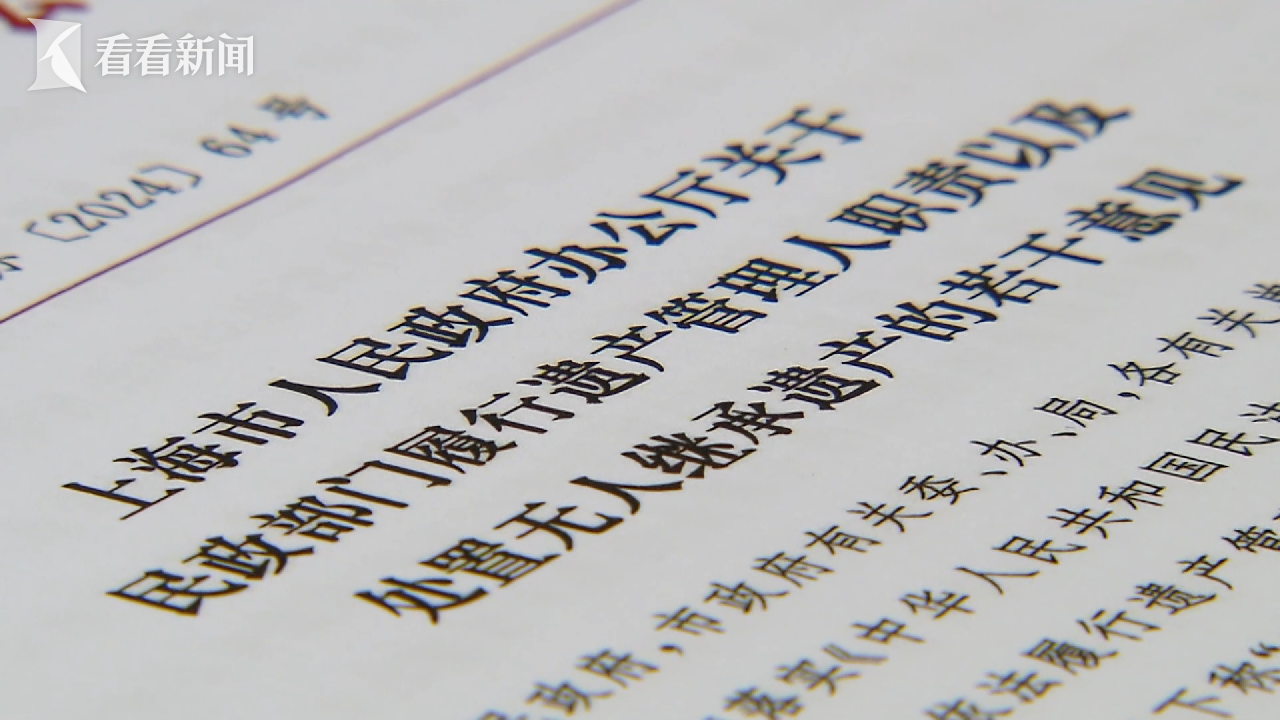 看看新闻
〔2024〕64号
上海市人民政府办公厅关于
民政部门履行遗产管理人职责以及
处置无人继承遗产的若干意见
民政府，市政府有关委、办、局，各有关单
落实《中华人民共和国民法
依法履行遗产管
下称“